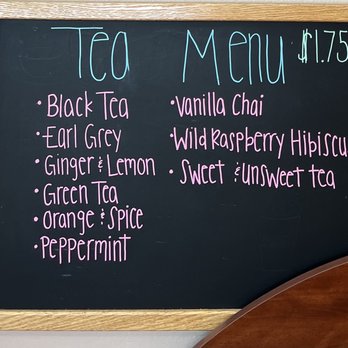 Tea Menu $1.75
• Black Tea
• Earl Grey
• Ginger & Lemon
• Green Tea
• Orange & Spice
• Peppermint
• Vanilla Chai
• Wild Raspberry Hibiscu
• Sweet & unsweet tea